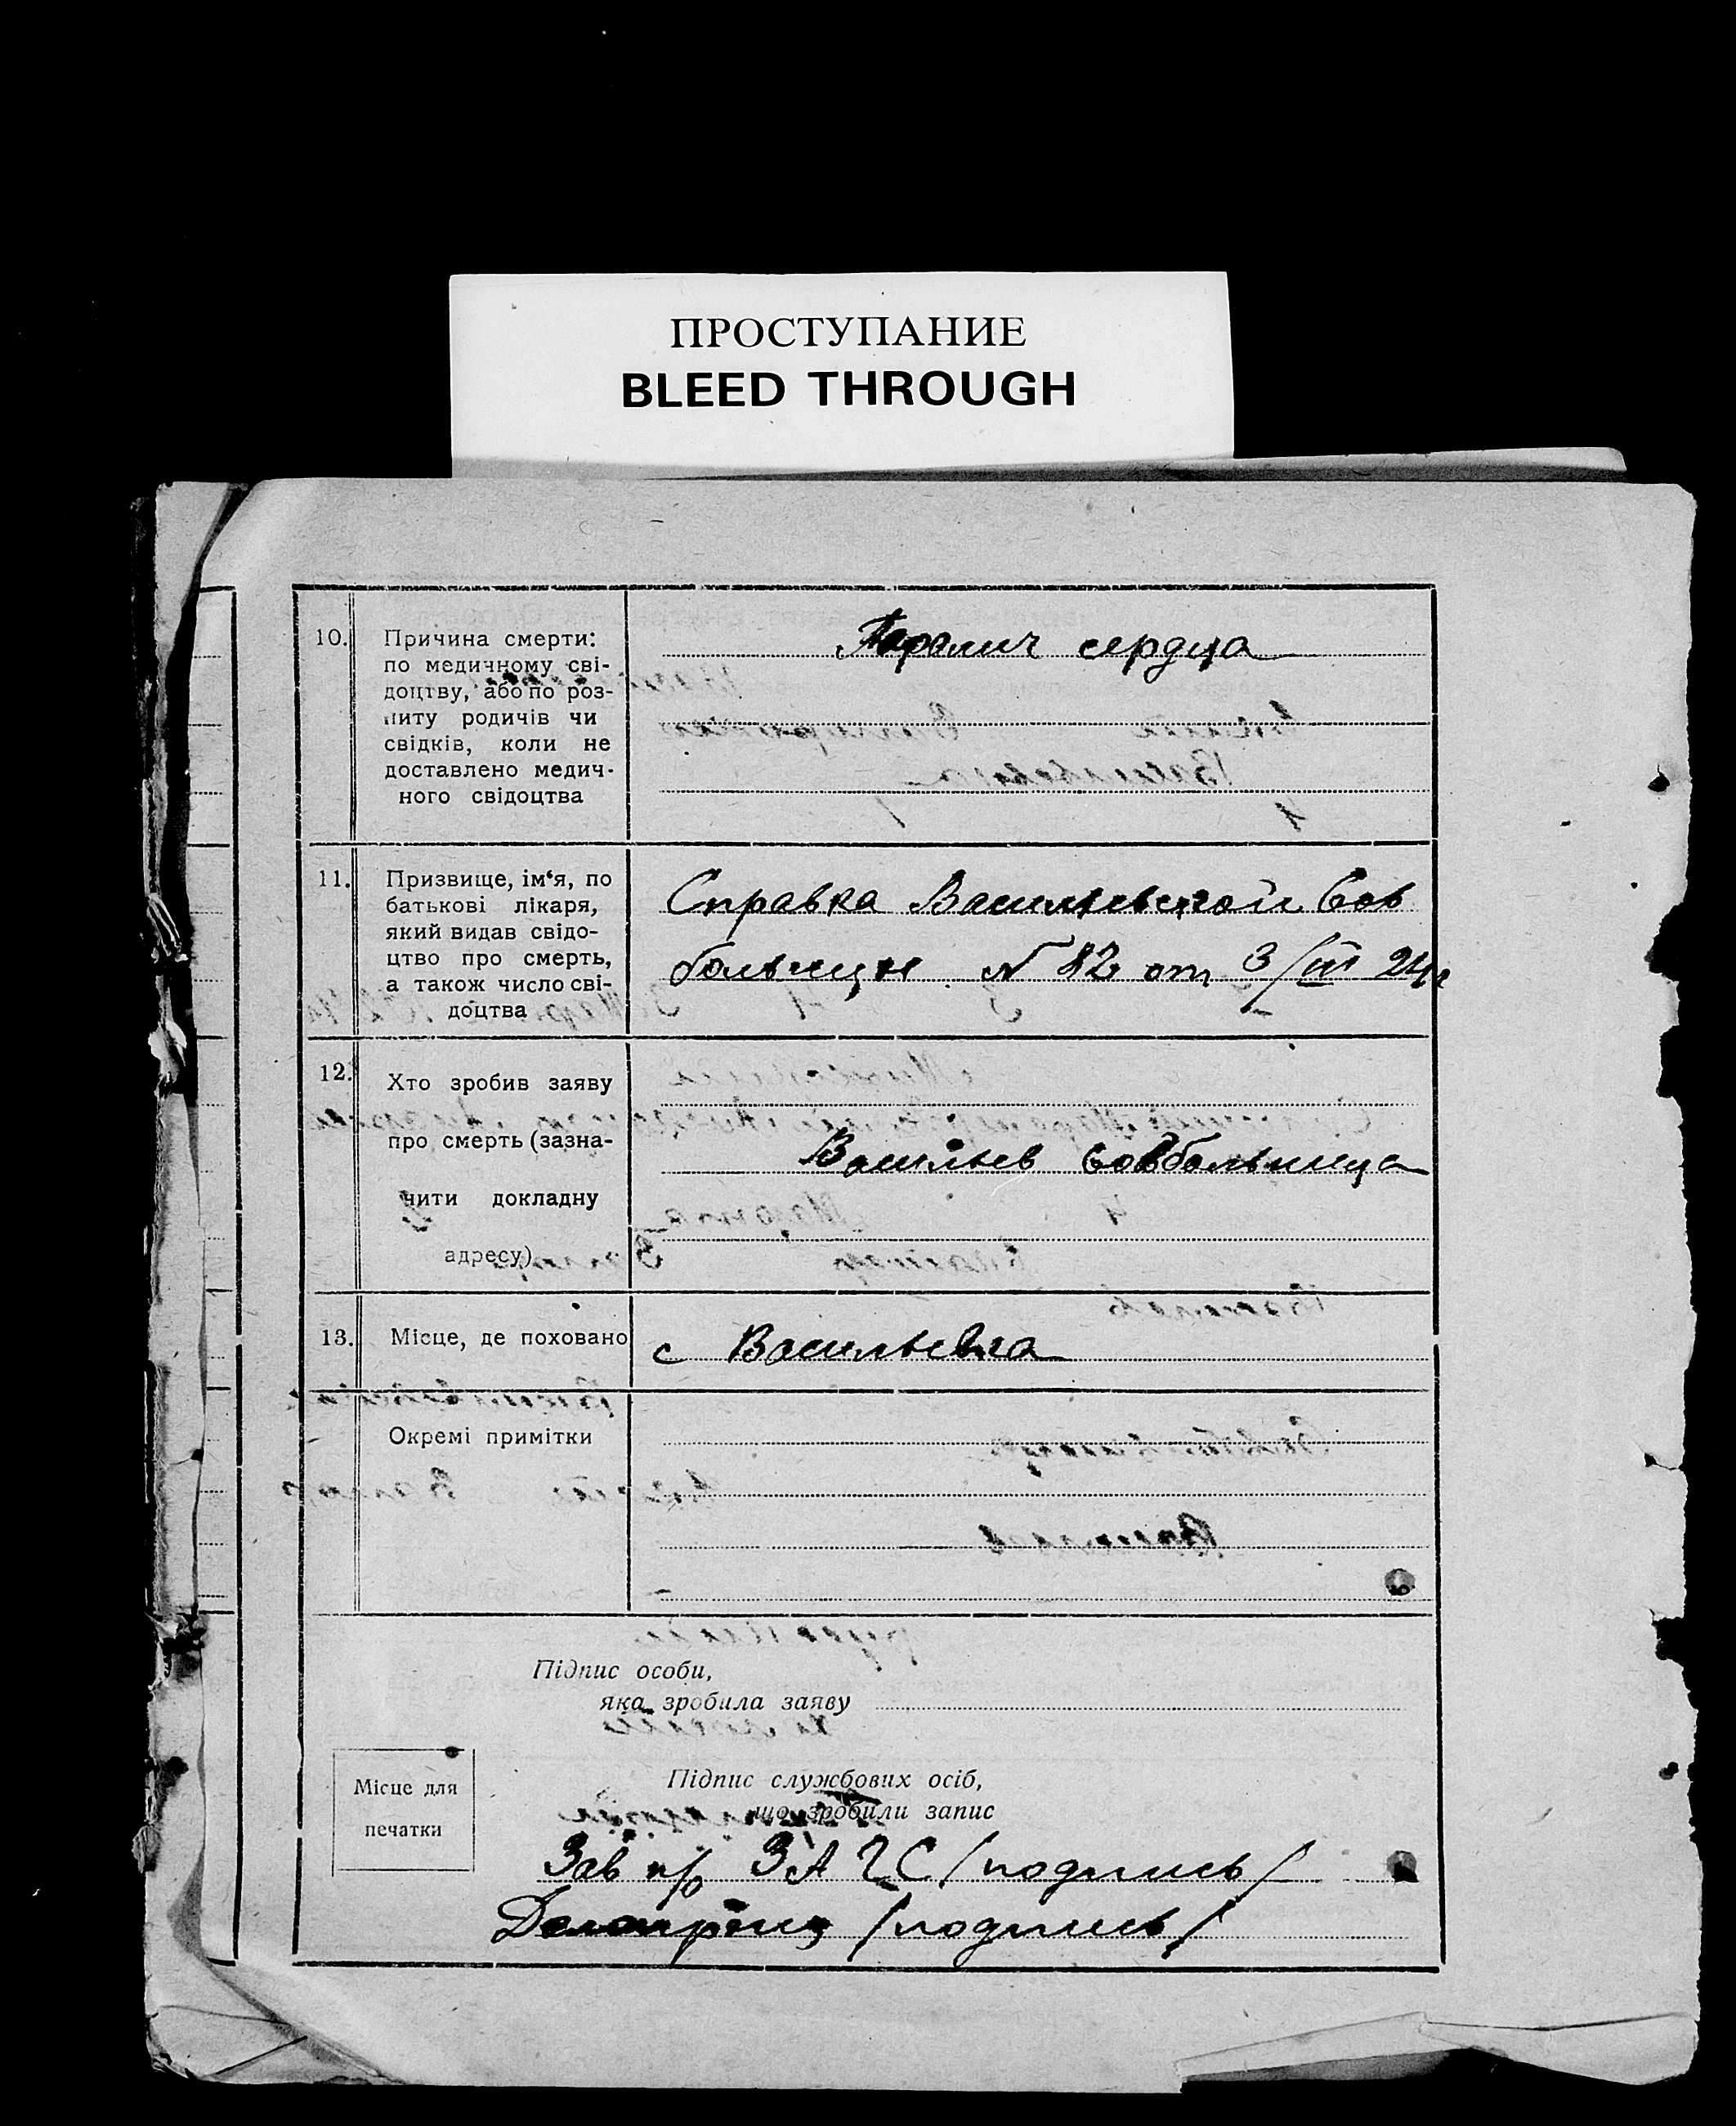 ПРОСТУПАНИЕ
BLEED THROUGH
10. Причина смерти:
по медичному сві-
доцтву, або по роз-
питу родичів чи
свідків, коли не
доставлено медич-
ного свідоцтва
Паралич сердца
11. Призвище, ім‘я, по
батькові лікаря,
який видав свідо-
цтво про смерть,
а також число сві-
доцтва
Справка Васильевской Сов
больницы N 82 от 3/III 24г
12. Хто зробив заяву
про смерть (зазна-
чити докладну
адресу)
Васильев Совбольница
13. Місце, де поховано
с Васильевка
Окремі примітки
Підпис особи,
яка зробила заяву
Місце для
печатки
Підпис службових осіб,
що зробили запис
Зав п/о ЗАГС /подпись/
/подпись/